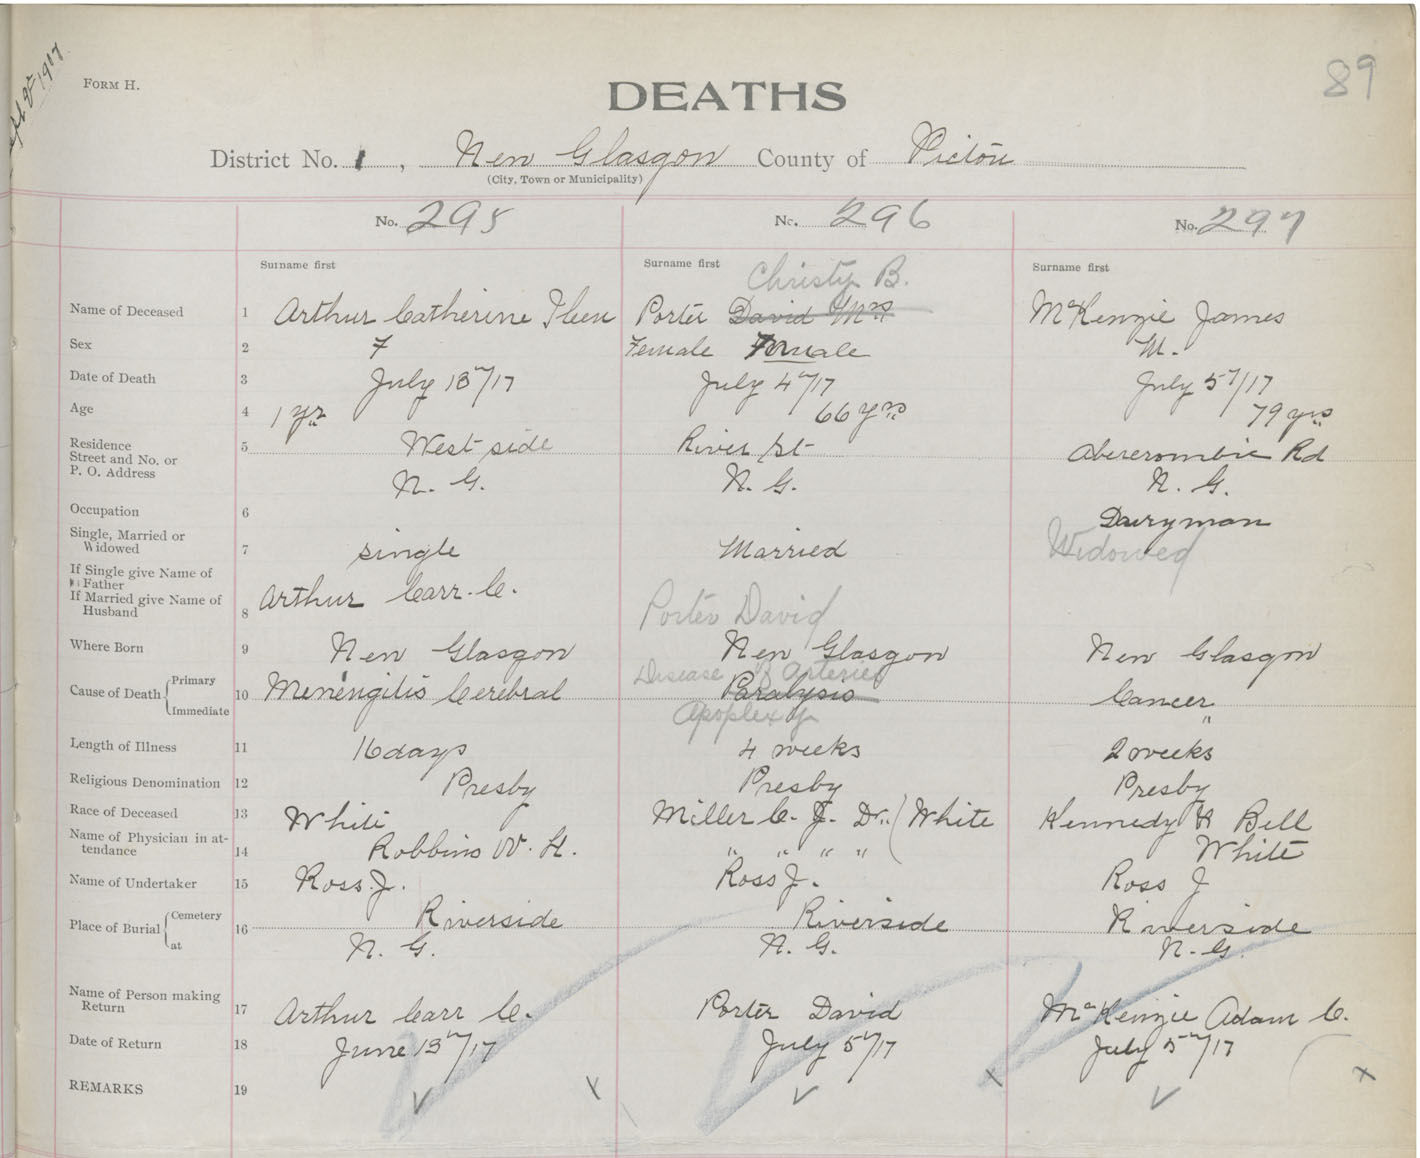 Sept 8 1917
FORM H.
89
DEATHS
District No. 1, New Glasgow County of Pictou
(City, Town or Municipality)
No. 295 No. 296 No. 297
Surname first Surname first Surname first
Christy B.
Name of Deceased 1 Arthur Catherine Ileen Porter David Mrs McKenzie James
Sex 2 F Female Female M.
Date of Death 3 July 13"/17 July 4"/17 July 5"/17
Age 4 1 yr 66 yrs 79 yrs
Residence 5 West side River St Abercrombie Rd
Street and No. or
P. O. Address N. G. N. G. N. G.
Occupation 6 Dairyman
Single, Married or
Widowed 7 single Married Widowed
If Single give Name of
Father
If Married give Name of
Husband 8 Arthur Carr. C. Porter David
Where Born 9 New Glasgow New Glasgow New Glasgow
Disease of Arteries
Cause of Death Primary 10 Menengitis Cerebral Paralysis Cancer
Immediate Apoplexy "
Length of Illness 11 16 days 4 weeks 2 weeks
Religious Denomination 12 Presby Presby Presby
Race of Deceased 13 White Miller C. J. Dr. (White Kennedy & Bell
Name of Physician in at-
tendance 14 Robbins W. H. " " " " White
Name of Undertaker 15 Ross J. Ross J. Ross J
Place of Burial Cemetery 16 Riverside Riverside Riverside
at N. G. N. G. N. G.
Name of Person making
Return 17 Arthur Carr C. Porter David McKenzie Adam C.
Date of Return 18 June 13"/17 July 5"/17 July 5"/17
REMARKS 19